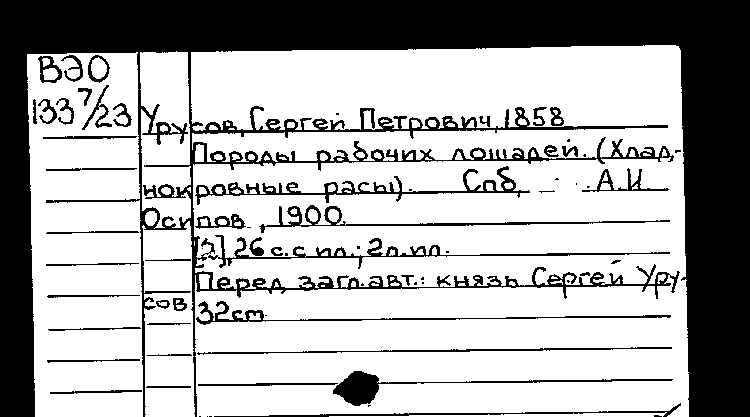 ВЭО
133 7/23
Урусов, Сергей Петрович, 1858
Породы рабочих лошадей. (Хлад-
нокровные расы). Спб, А.И.
Осипов, 1900.
[2], 26 с. с ил.; 2 л. ил.
Перед загл. авт.: князь Сергей Уру-
сов
32см